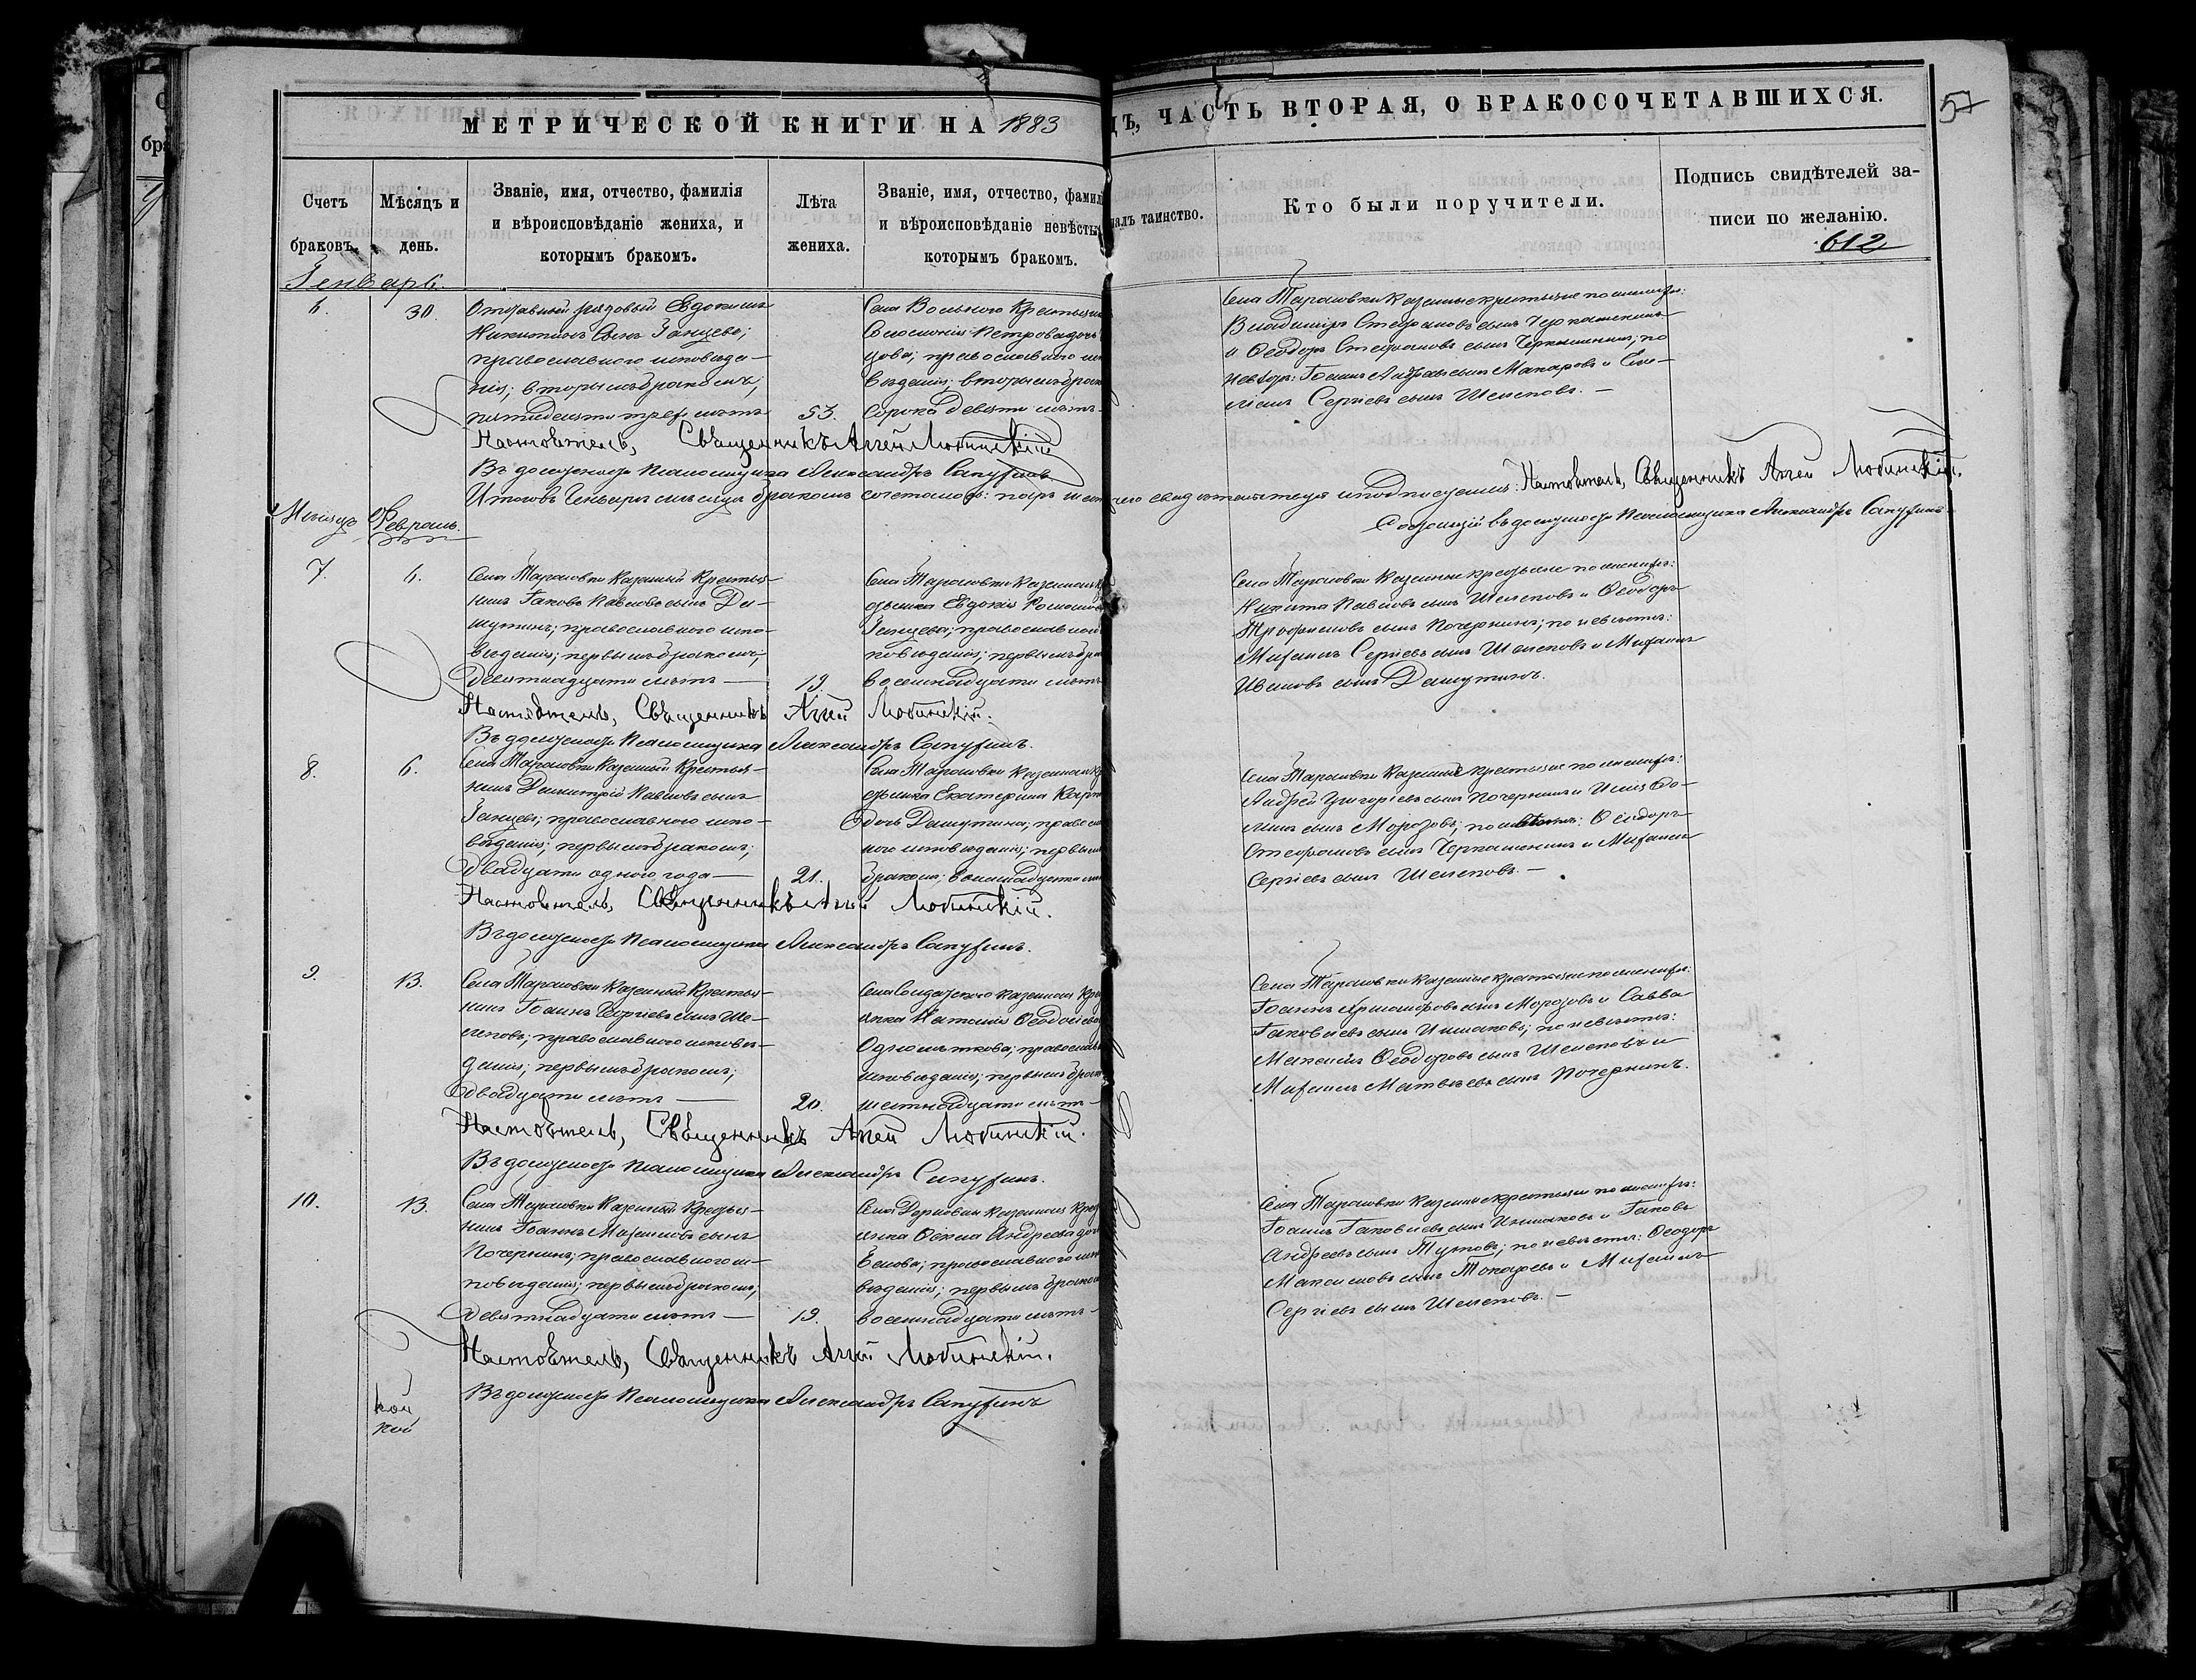 МЕТРИЧЕСКОЙ КНИГИ НА 1883
ДЪ, ЧАСТЬ ВТОРАЯ, О БРАКОСОЧЕТАВШИХСЯ.
57
Счетъ браковъ.
Мѣсяцъ и день.
Званіе, имя, отчество, фамилія
и вѣроисповѣданіе жениха, и
которымъ бракомъ.
Лѣта жениха.
Званіе, имя, отчество, фамил
и вѣроисповѣданіе невѣсты
которымъ бракомъ.
алъ таинство.
Кто были поручители.
Подпись свидѣтелей за-
писи по желанію.
612
Генварь.
6.
30.
Отставный рядовый Евдокимъ
Никитинъ сынъ Ганцевъ;
православнаго исповѣда-
нія; вторымъ бракомъ,
пятидесяти трех лѣтъ
53.
Села Вольнаго
Соломонія Петрова дочь
цова; православнаго
вѣданія; вторымъ брак
сорока девяти лѣтъ
Села Тарасовки казенные крестьяне по жених:
Владимiръ Стефановъ сынъ Черкашенинъ
и Ѳеодоръ Стефановъ сынъ Черкашенинъ; по
невѣст: Іоаннъ сынъ Макаровъ и
Сергіевъ сынъ Шелеповъ. —
Настоятель, Священникъ Аггей Любицкій
Въ должности Псаломщика Александръ Сапухинъ
Итого въ Генварѣ мѣсяцѣ бракомъ сочеталось: паръ
свидѣтельствуемъ и подписуемъ: Настоятель, Священникъ Аггей Любицкій.
Состоящій въ должности Псаломщика Александръ Сапухинъ
Мѣсяцъ Февраль.
7.
6.
Села Тарасовки казенный крестья-
нинъ Іаковъ Павловъ сынъ Да-
шутинъ; православнаго испо-
вѣданія; первымъ бракомъ;
девятнадцати лѣтъ —
19.
Села Тарасовки казенная к
стьянка Евдокія
Ганцева; православнаго
повѣданія; первымъ бра
восемнадцати лѣтъ
Села Тарасовки казенные крестьяне по жених:
Никита Павловъ сынъ Шелеповъ и Ѳеодоръ
Трофимовъ сынъ Почернинъ; по невѣстѣ:
Михаилъ Сергіевъ сынъ Шелеповъ и Михаилъ
Ивановъ сынъ Дашутинъ.
Настоятель, Священникъ Аггей Любицкій.
Въ должности Псаломщика Александръ Сапухинъ.
8.
6.
Села Тарасовки казенный крестья-
нинъ Димитрій Павловъ сынъ
Ганцевъ; православнаго испо-
вѣданія; первымъ бракомъ;
двадцати одного года —
21.
Села Тарасовки казенная кр
стьянка Екатерина Карп
дочь Дашутина; правосла
наго исповѣданія; первым
бракомъ; восемнадцати
Села Тарасовки казенные крестьяне по жених:
Андрей Григоріевъ сынъ Почернинъ и
сынъ Морозовъ; по невѣстѣ: Ѳеодоръ
Стефановъ сынъ Черкашенинъ и Михаилъ
Сергіевъ сынъ Шелеповъ. —
Настоятель, Священникъ Аггей Любицкій.
Въ должности Псаломщика Александръ Сапухинъ.
9.
13.
Села Тарасовки казенный крестья-
нинъ Іоаннъ Георгіевъ сынъ Ше-
леповъ; православнаго исповѣ-
данія; первымъ бракомъ;
двадцати лѣтъ —
20.
Села Солдатскаго казенная кре
янка Наталія Ѳеодосіева
православн
исповѣданія; первымъ брак
шестнадцати лѣтъ —
Села Тарасовки казенные крестьяне по жених:
Іоаннъ сынъ Морозовъ и Савва
Іаковлевъ сынъ; по невѣстѣ:
Максимъ Ѳеодоровъ сынъ Шелеповъ и
Михаилъ Матвѣевъ сынъ Почернинъ.
Настоятель, Священникъ Аггей Любицкій.
Въ должности Псаломщика Александръ Сапухинъ.
10.
13.
Села Тарасовки казенный крестья-
нинъ Іоаннъ Михаиловъ сынъ
Почернинъ; православнаго ис-
повѣданія; первымъ бракомъ;
девятнадцати лѣтъ —
19.
казенная крес
янка Андреева доч
православнаго испо
вѣданія; первымъ браком
восемнадцати лѣтъ —
Села Тарасовки казенные крестьяне по жених:
Іоаннъ Іаковлевъ сынъ и Іаковъ
Андреевъ сынъ; по невѣстѣ: Ѳеодоръ
Максимовъ сынъ Токаревъ и Михаилъ
Сергіевъ сынъ Шелеповъ. —
Настоятель, Священникъ Аггей Любицкій.
Въ должности Псаломщика Александръ Сапухинъ